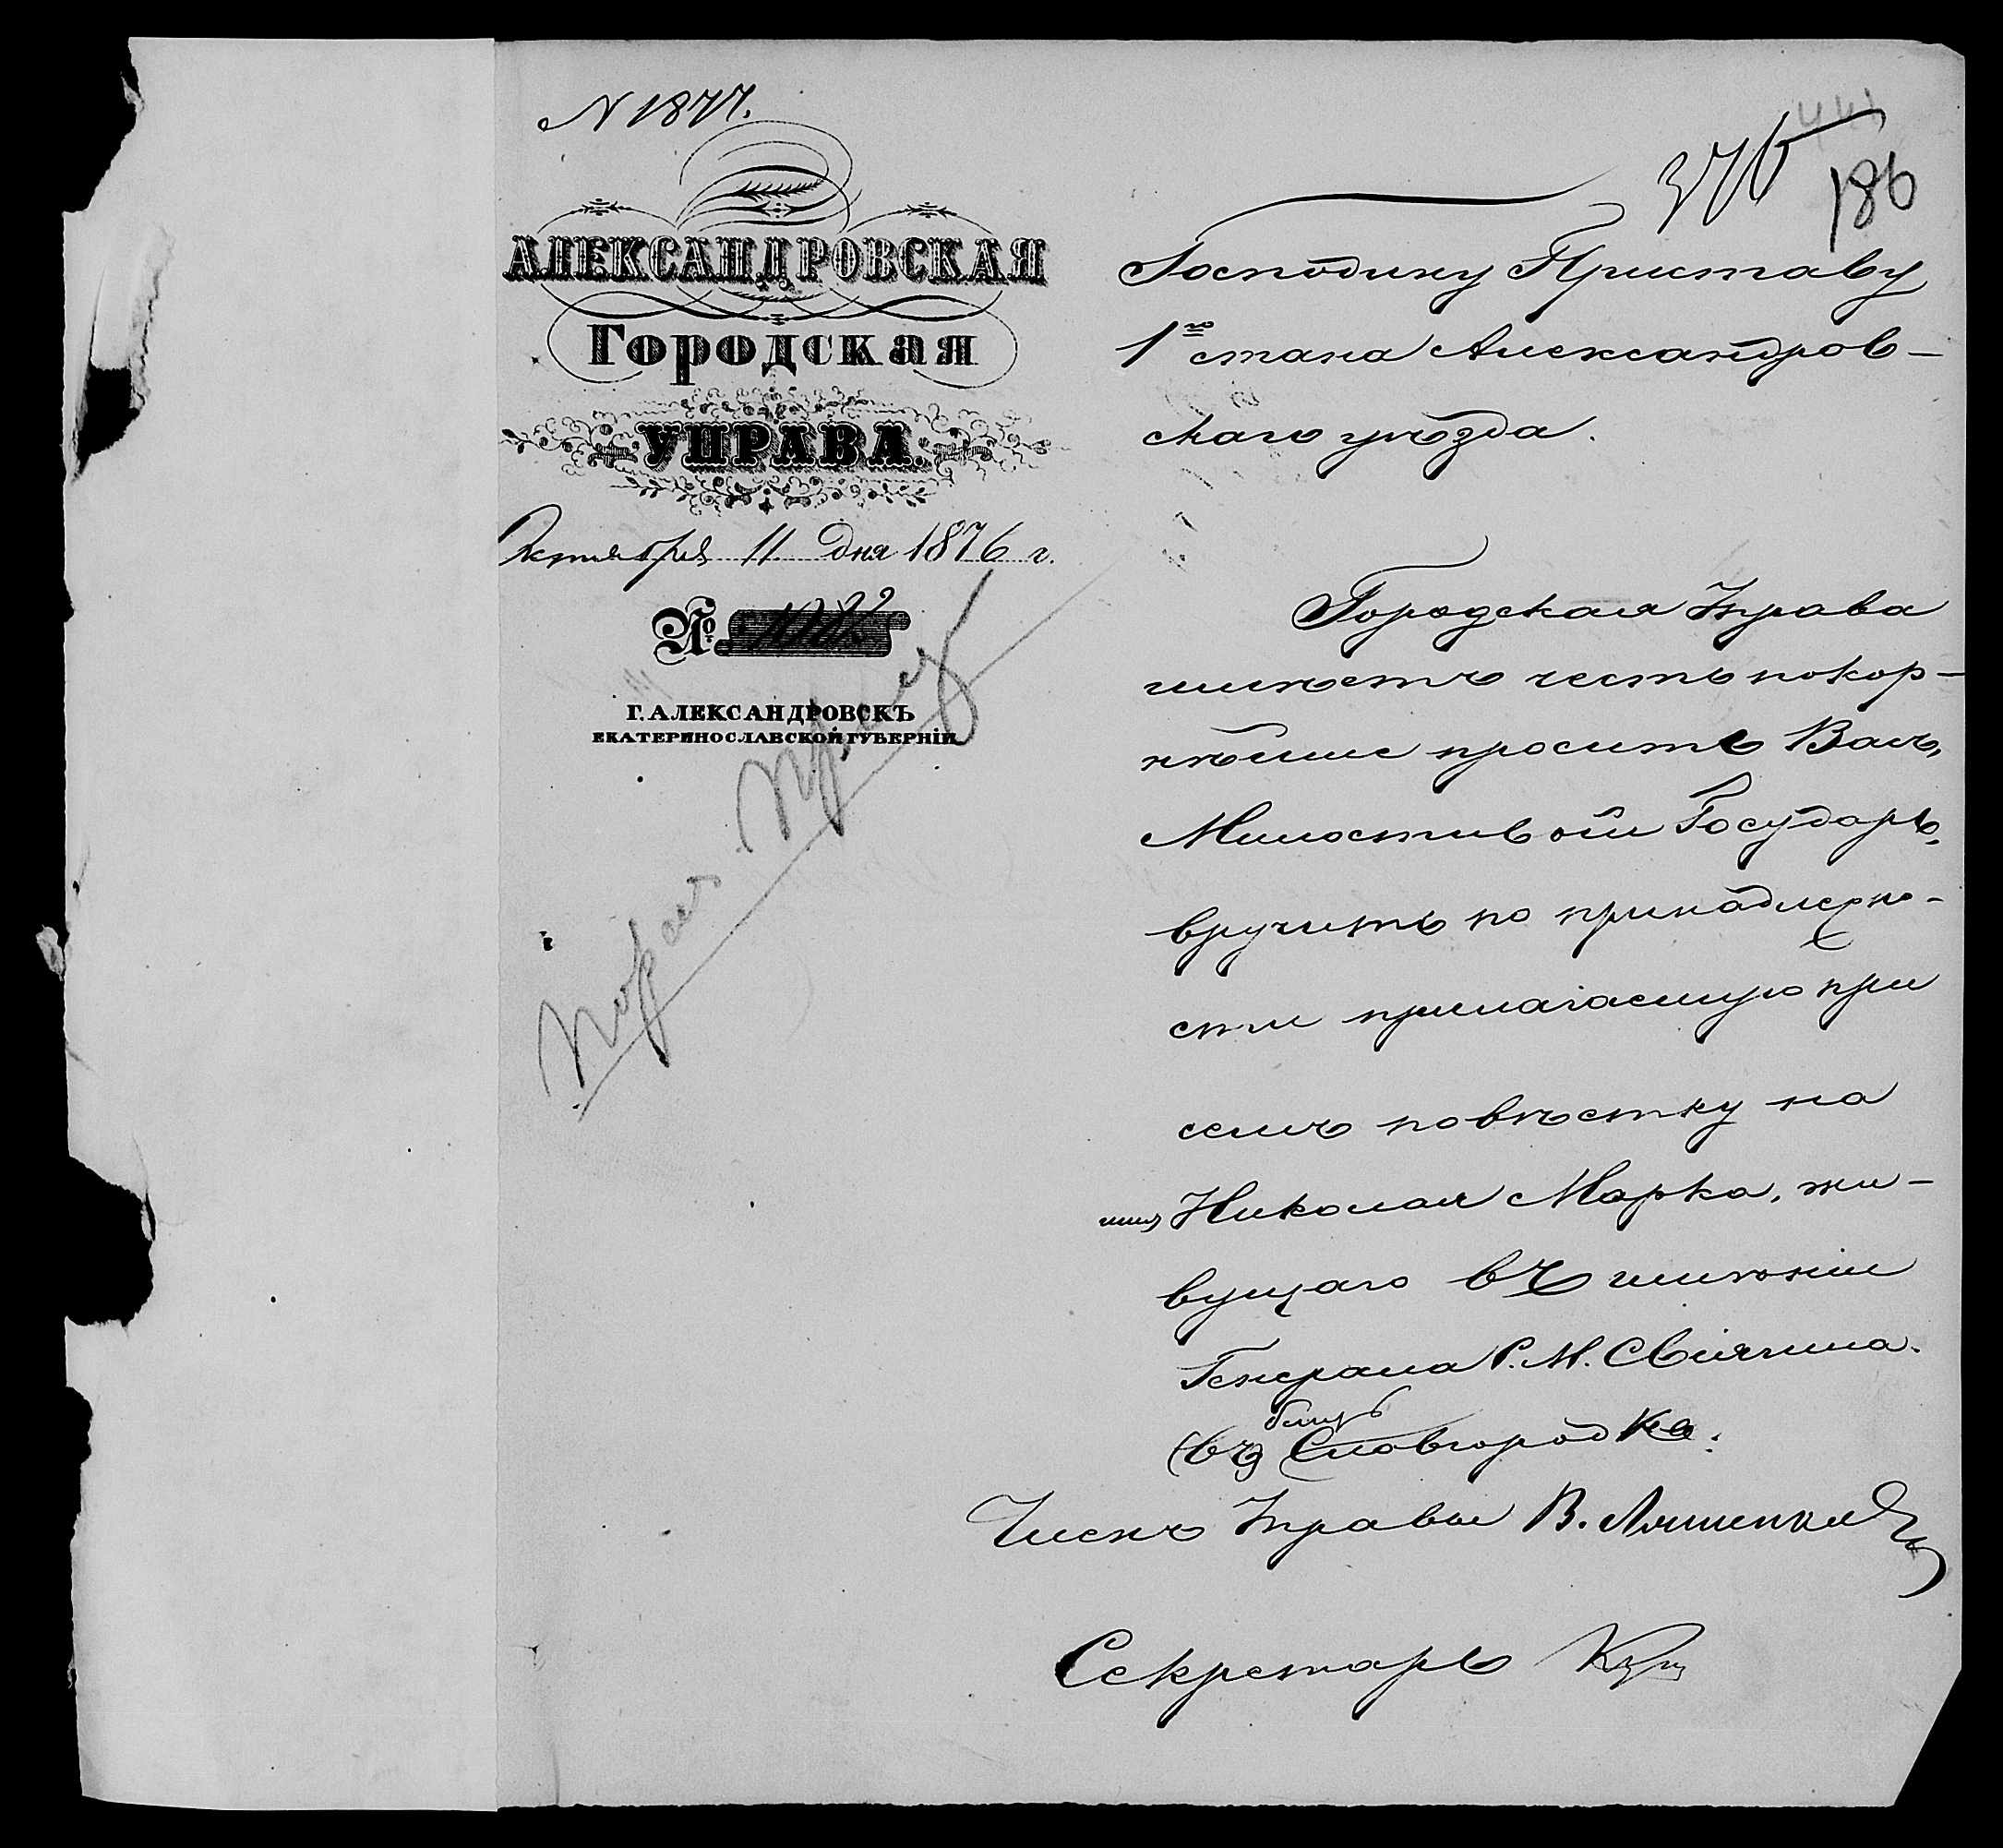 N 1877.
376
186
АЛЕКСАНДРОВСКАЯ
ГОРОДСКАЯ
УПРАВА.
Октября 11 дня 1876 г.
№
Г. АЛЕКСАНДРОВСКЪ
ЕКАТЕРИНОСЛАВСКОЙ ГУБЕРНІИ
Господину Приставу
1го стана Александров-
скаго уѣзда.
Городская Управа
имѣетъ честь покор-
нѣйше просить Васъ,
Милостивый Государь,
вручить по принадлежно-
сти прилагаемую при
семъ повѣстку на
имя Николая Марка, жи-
вущаго въ имѣніи
Генерала Р. М. Свіягина.
близъ
(въ) Славгородка.
Членъ Управы В. Ляшенко
Секретарь